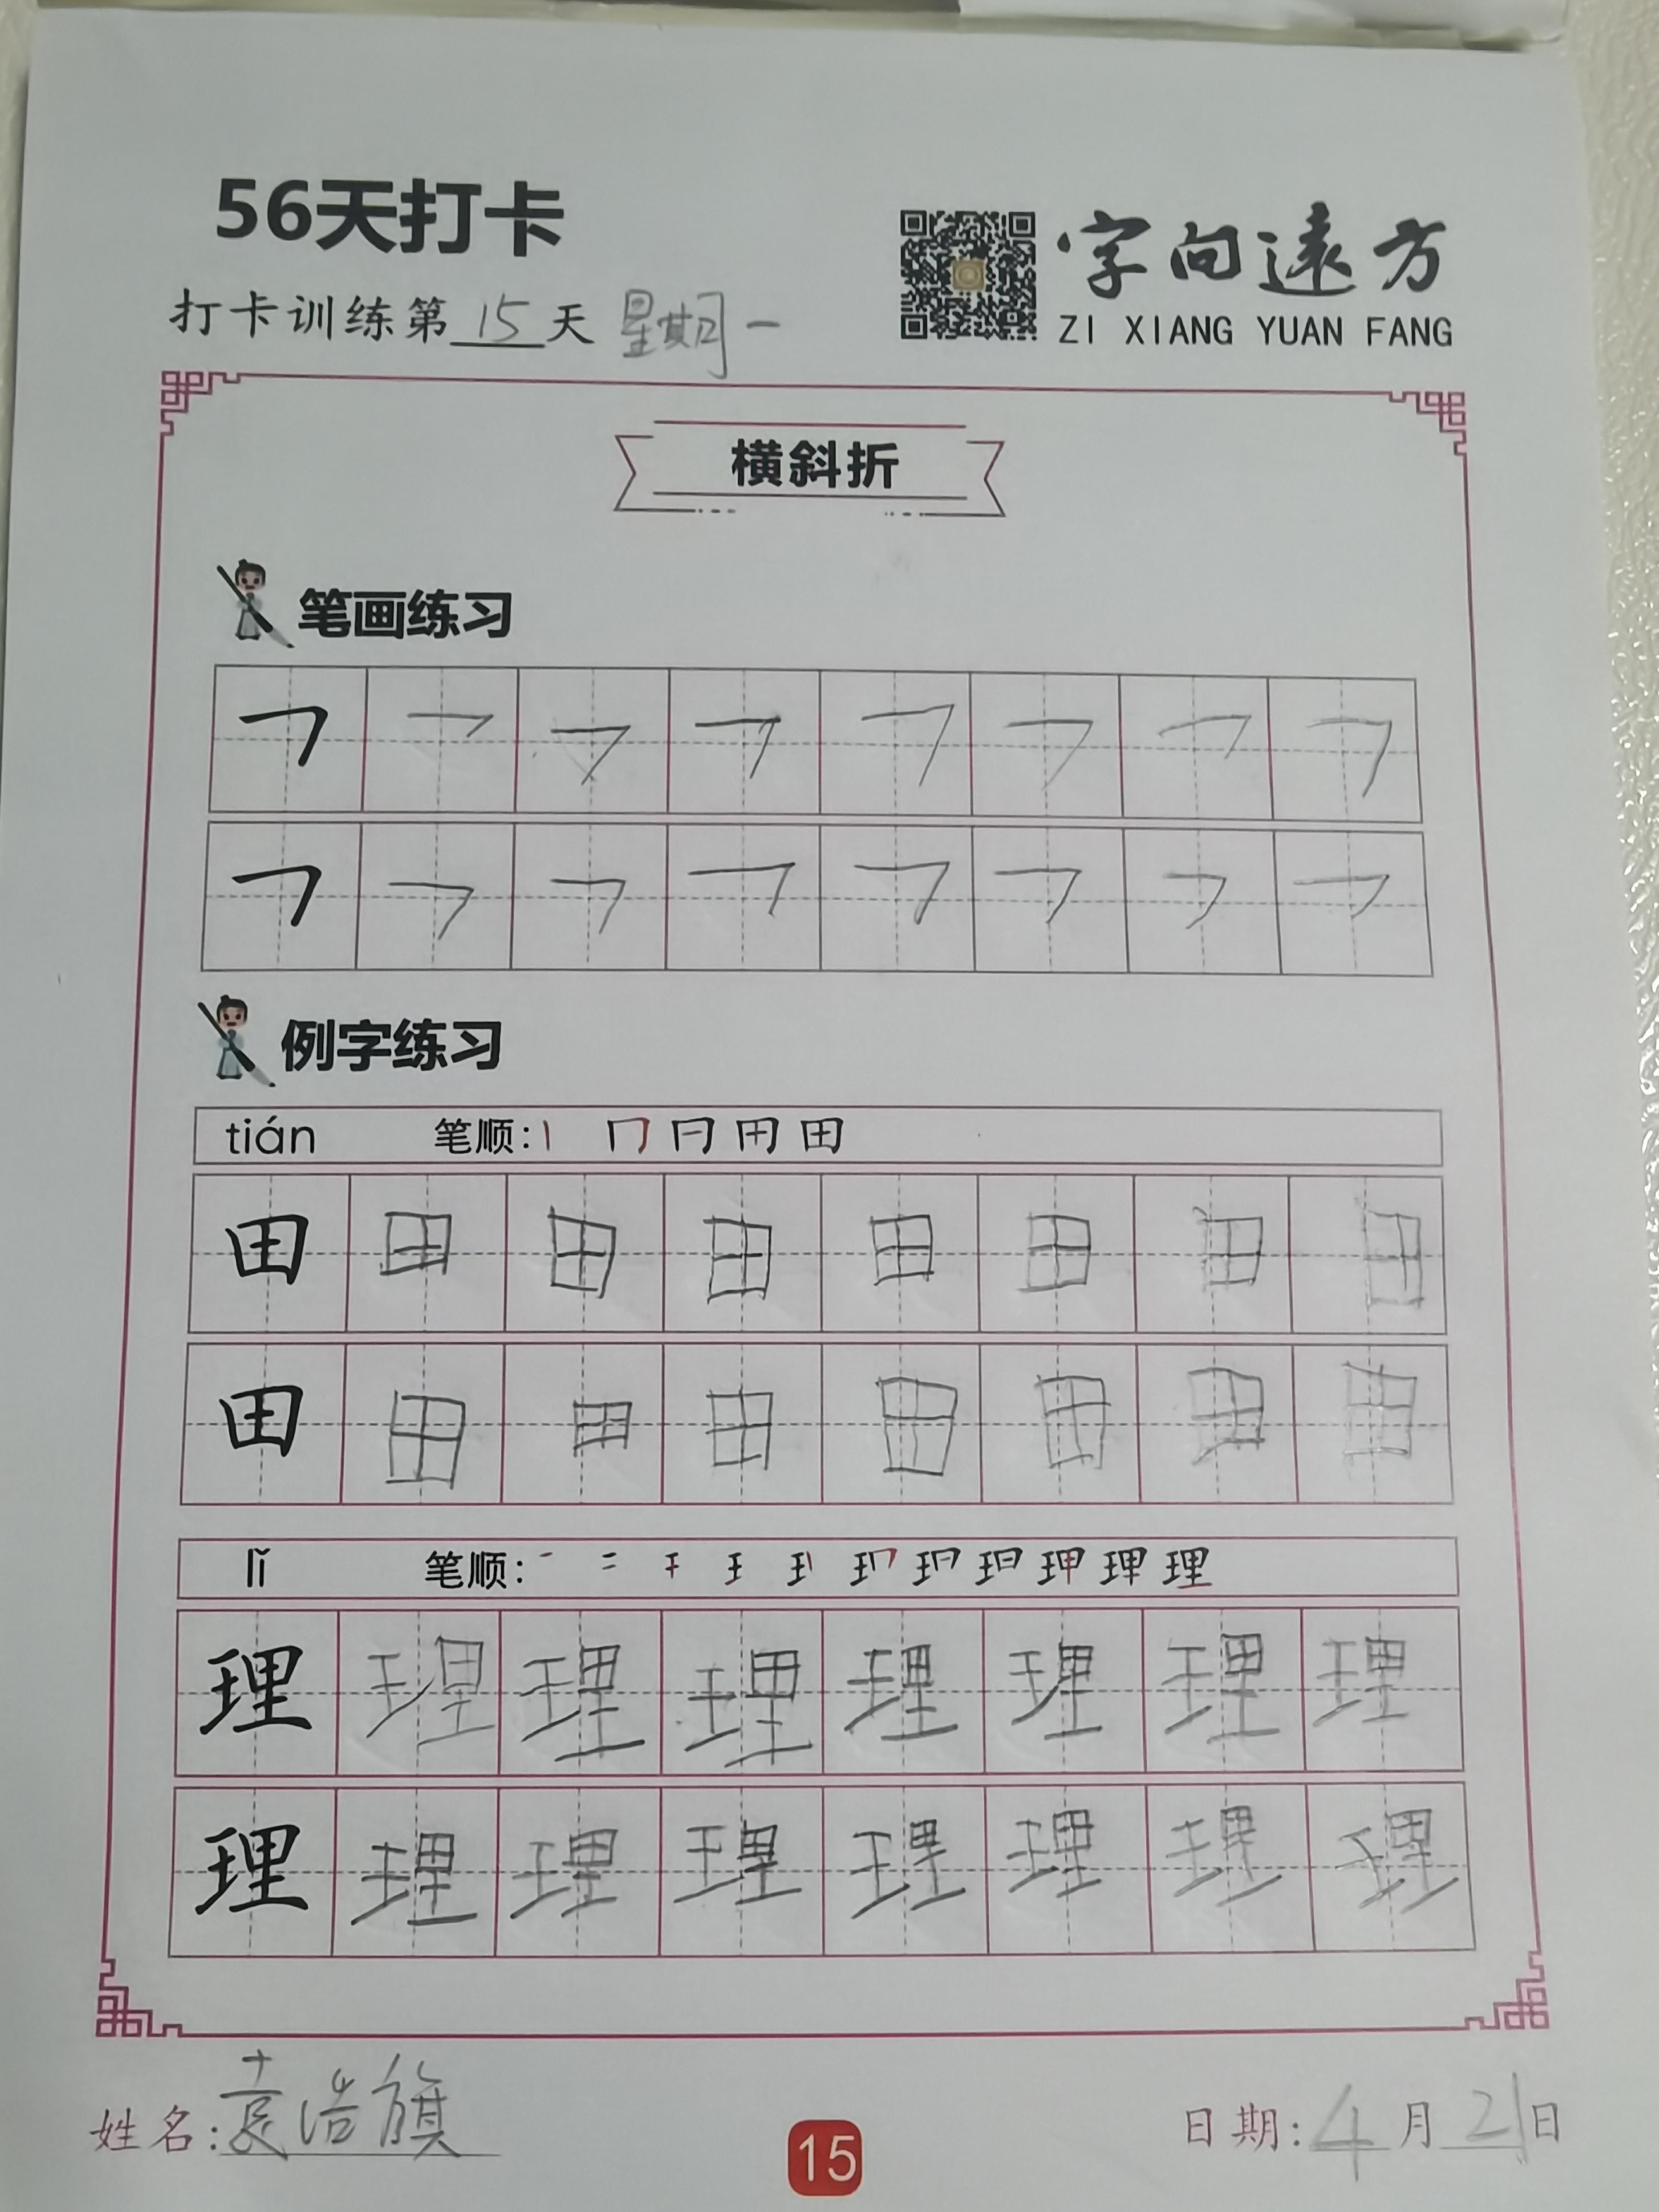 56天打卡
字向遠方
打卡训练第15天 星期一
ZI XIANG YUAN FANG
横斜折
笔画练习
㇇ ㇇ ㇇ ㇇ ㇇ ㇇ ㇇ ㇇
㇇ ㇇ ㇇ ㇇ ㇇ ㇇ ㇇ ㇇
例字练习
tián 笔顺:
田 田 田 田 田 田 田 田
田 田 田 田 田 田 田 田
lǐ 笔顺:
理 理 理 理 理 理 理 理
理 理 理 理 理 理 理 理
姓名:袁浩旗
日期:4月21日
15